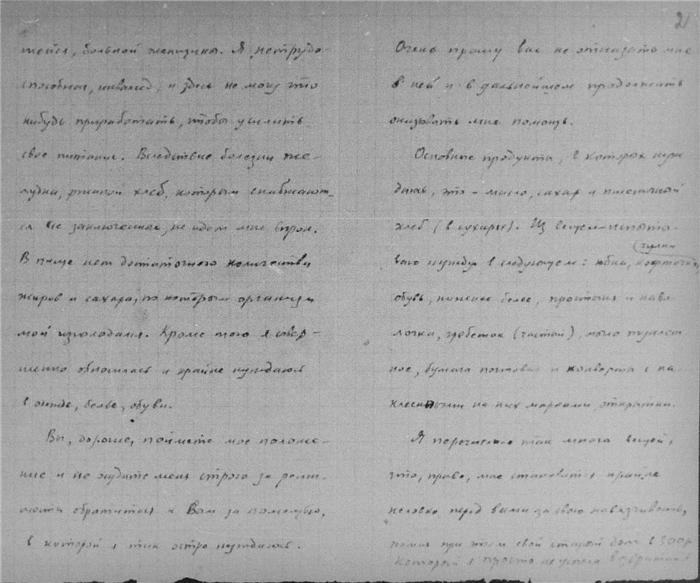 тейся, больной женщины. Я нетрудо-
способная, инвалид, и здесь не могу что
нибудь приработать, чтобы усилить
свое питание. Вследствие болезни же-
лудка, ржаной хлеб, которым снабжают-
ся все заключенные, не идет мне впрок.
В пище нет достаточного количества
жиров и сахара, по которым организм
мой изголодался. Кроме того я совер-
шенно обносилась и крайне нуждаюсь
в одежде, белье, обуви.
Вы, дорогие, поймете мое положе-
ние и не судите меня строго за реши-
мость обратиться к Вам за помощью,
в которой я так остро нуждаюсь.
2
Очень прошу вас не отказать мне
в ней и в дальнейшем продолжать
оказывать мне помощь.
Основные продукты, в которых нуж
даюсь, это - масло, сахар и пшеничный
хлеб (в сухарях). Из вещей испыты-
ваю нужду в следующем: юбка, кофточка,
чулки
обувь, нижнее белье, простыня и наво-
лочка, гребешок (частый), мыло туалет-
ное, бумага почтовая и конверты с на
клеенными на них марками, открытки.
Я перечислила так много вещей,
что, право, мне становится крайне
неловко перед вами за свою навязчивость,
помня при этом свой старый долг в 300 р
который я просто не успела возвратить